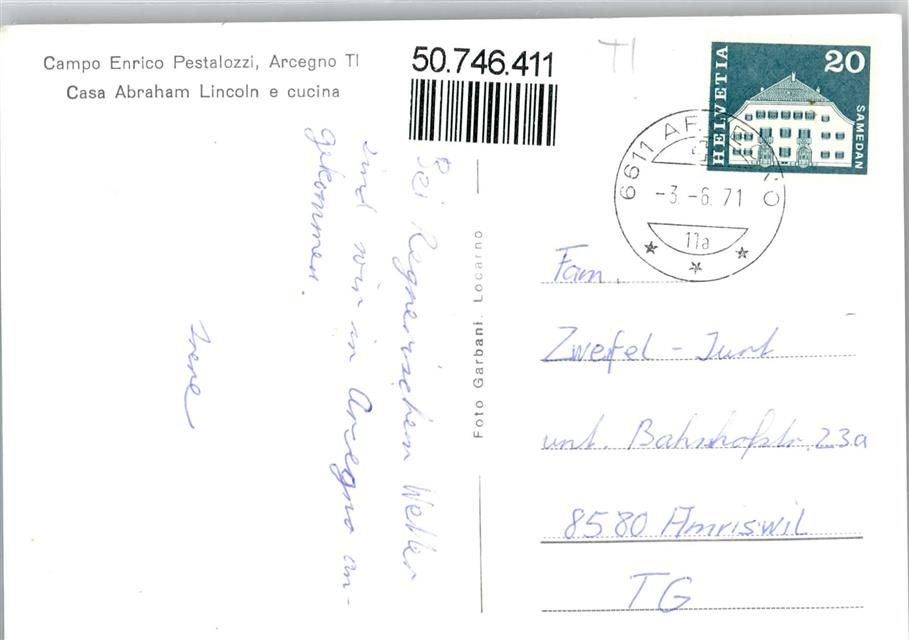 Campo Enrico Pestalozzi, Arcegno TI
Casa Abraham Lincoln e cucina
50.746.411
TI
HELVETIA
20
SAMEDAN
6611 A
-3.-6.71
11a
Bei Regnerischem Wetter
sind wir in Arcegno an-
gekommen.
Irene
Foto Garbani. Locarno
Fam.
Zweifel - Junt
unt. Bahnhofstr. 23a
8580 Amriswil
TG